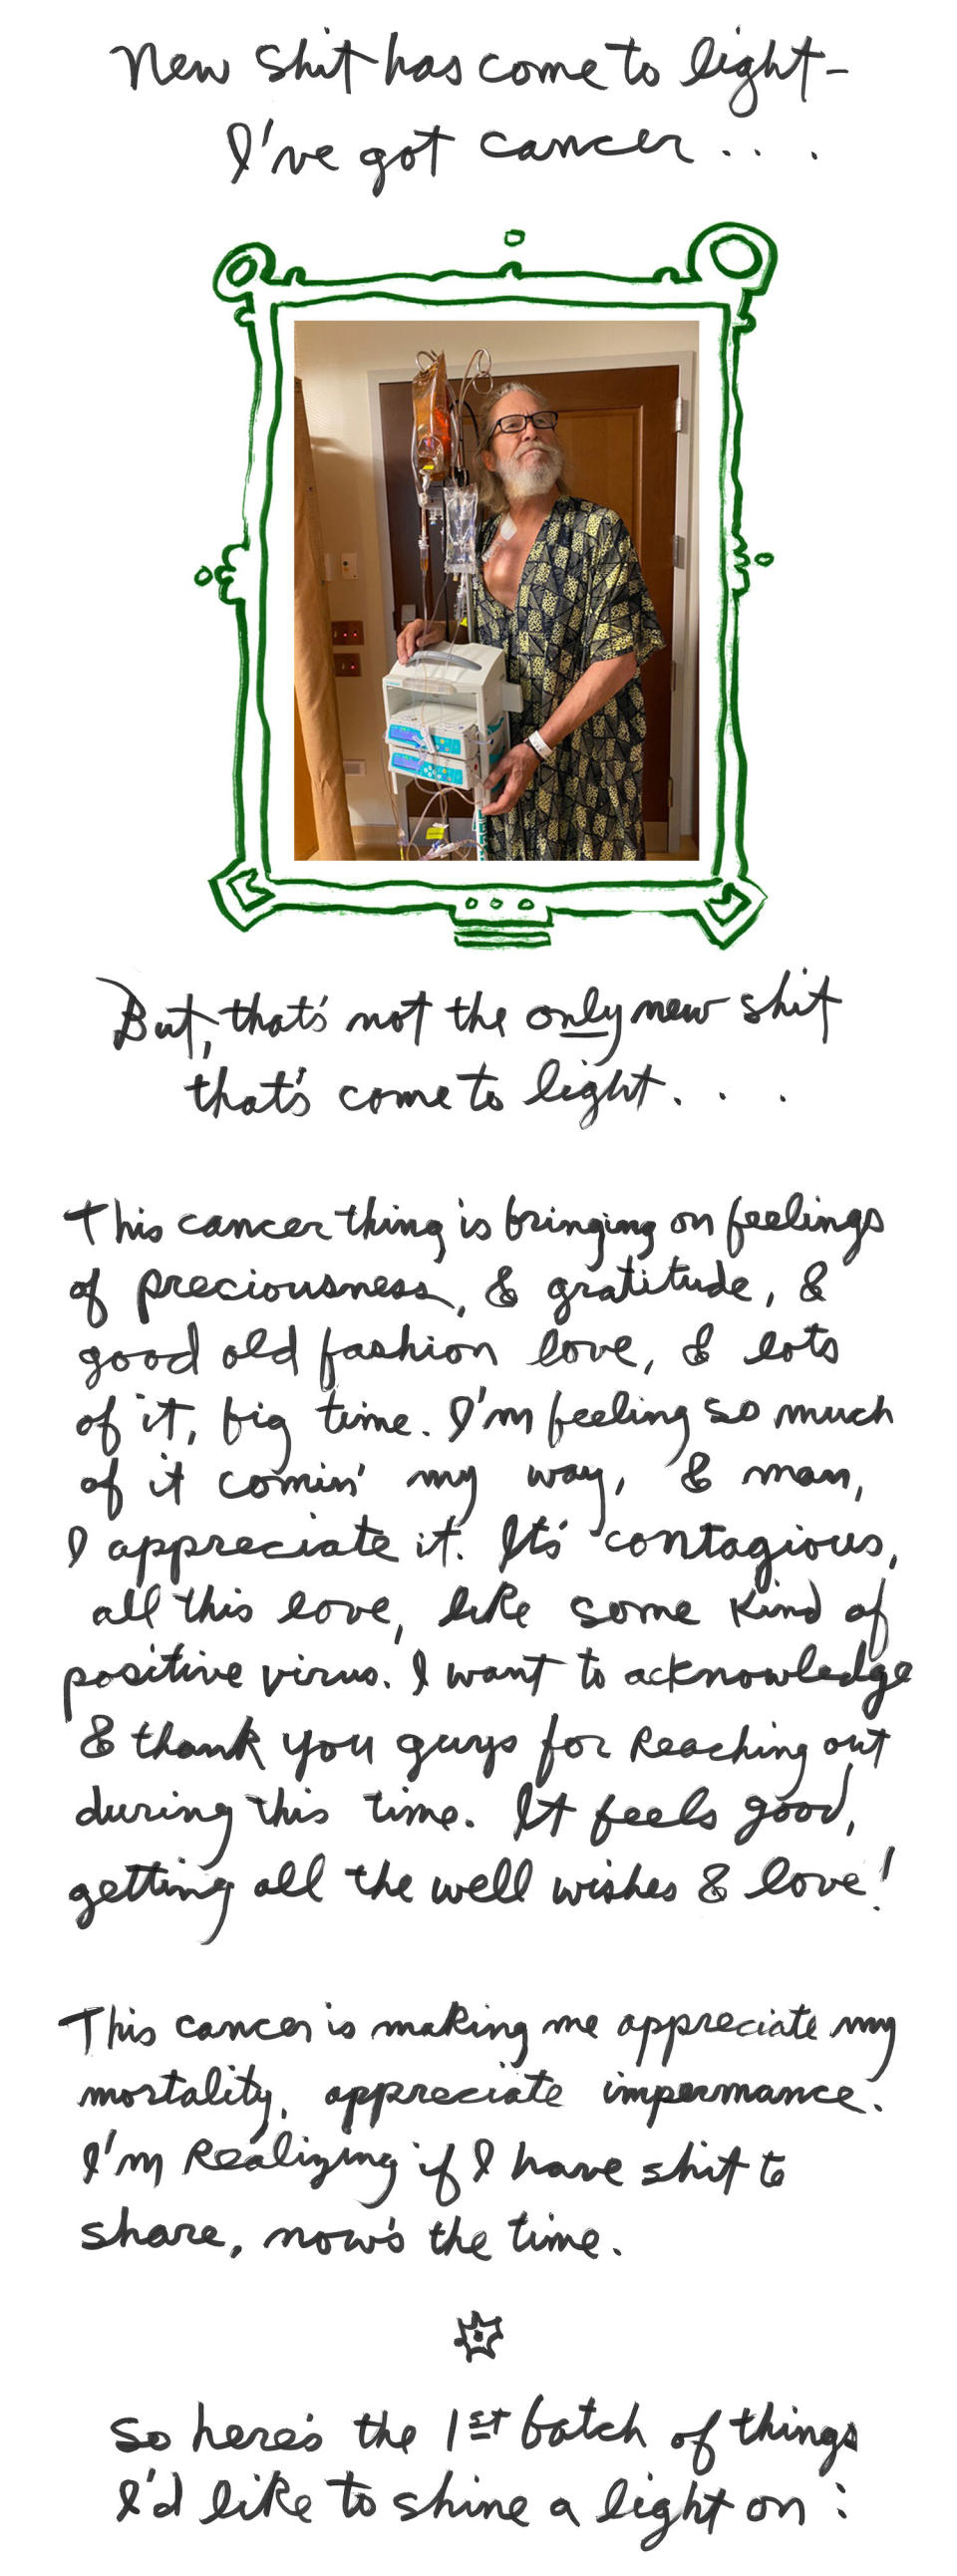 New Shit has come to light -
I've got cancer . . .
But, that's not the only new shit
that's come to light. . . .
This cancer thing is bringing on feelings
of preciousness, & gratitude, &
good old fashion love, & lots
of it, big time. I'm feeling so much
of it comin' my way, & man,
I appreciate it. It's contagious,
all this love, like some kind of
positive virus. I want to acknowledge
& thank you guys for Reaching out
during this time. It feels good,
getting all the well wishes & love!
This cancer is making me appreciate my
mortality, appreciate impermance.
I'm Realizing if I have shit to
share, now's the time.
So here's the 1st batch of things
I'd like to shine a light on :